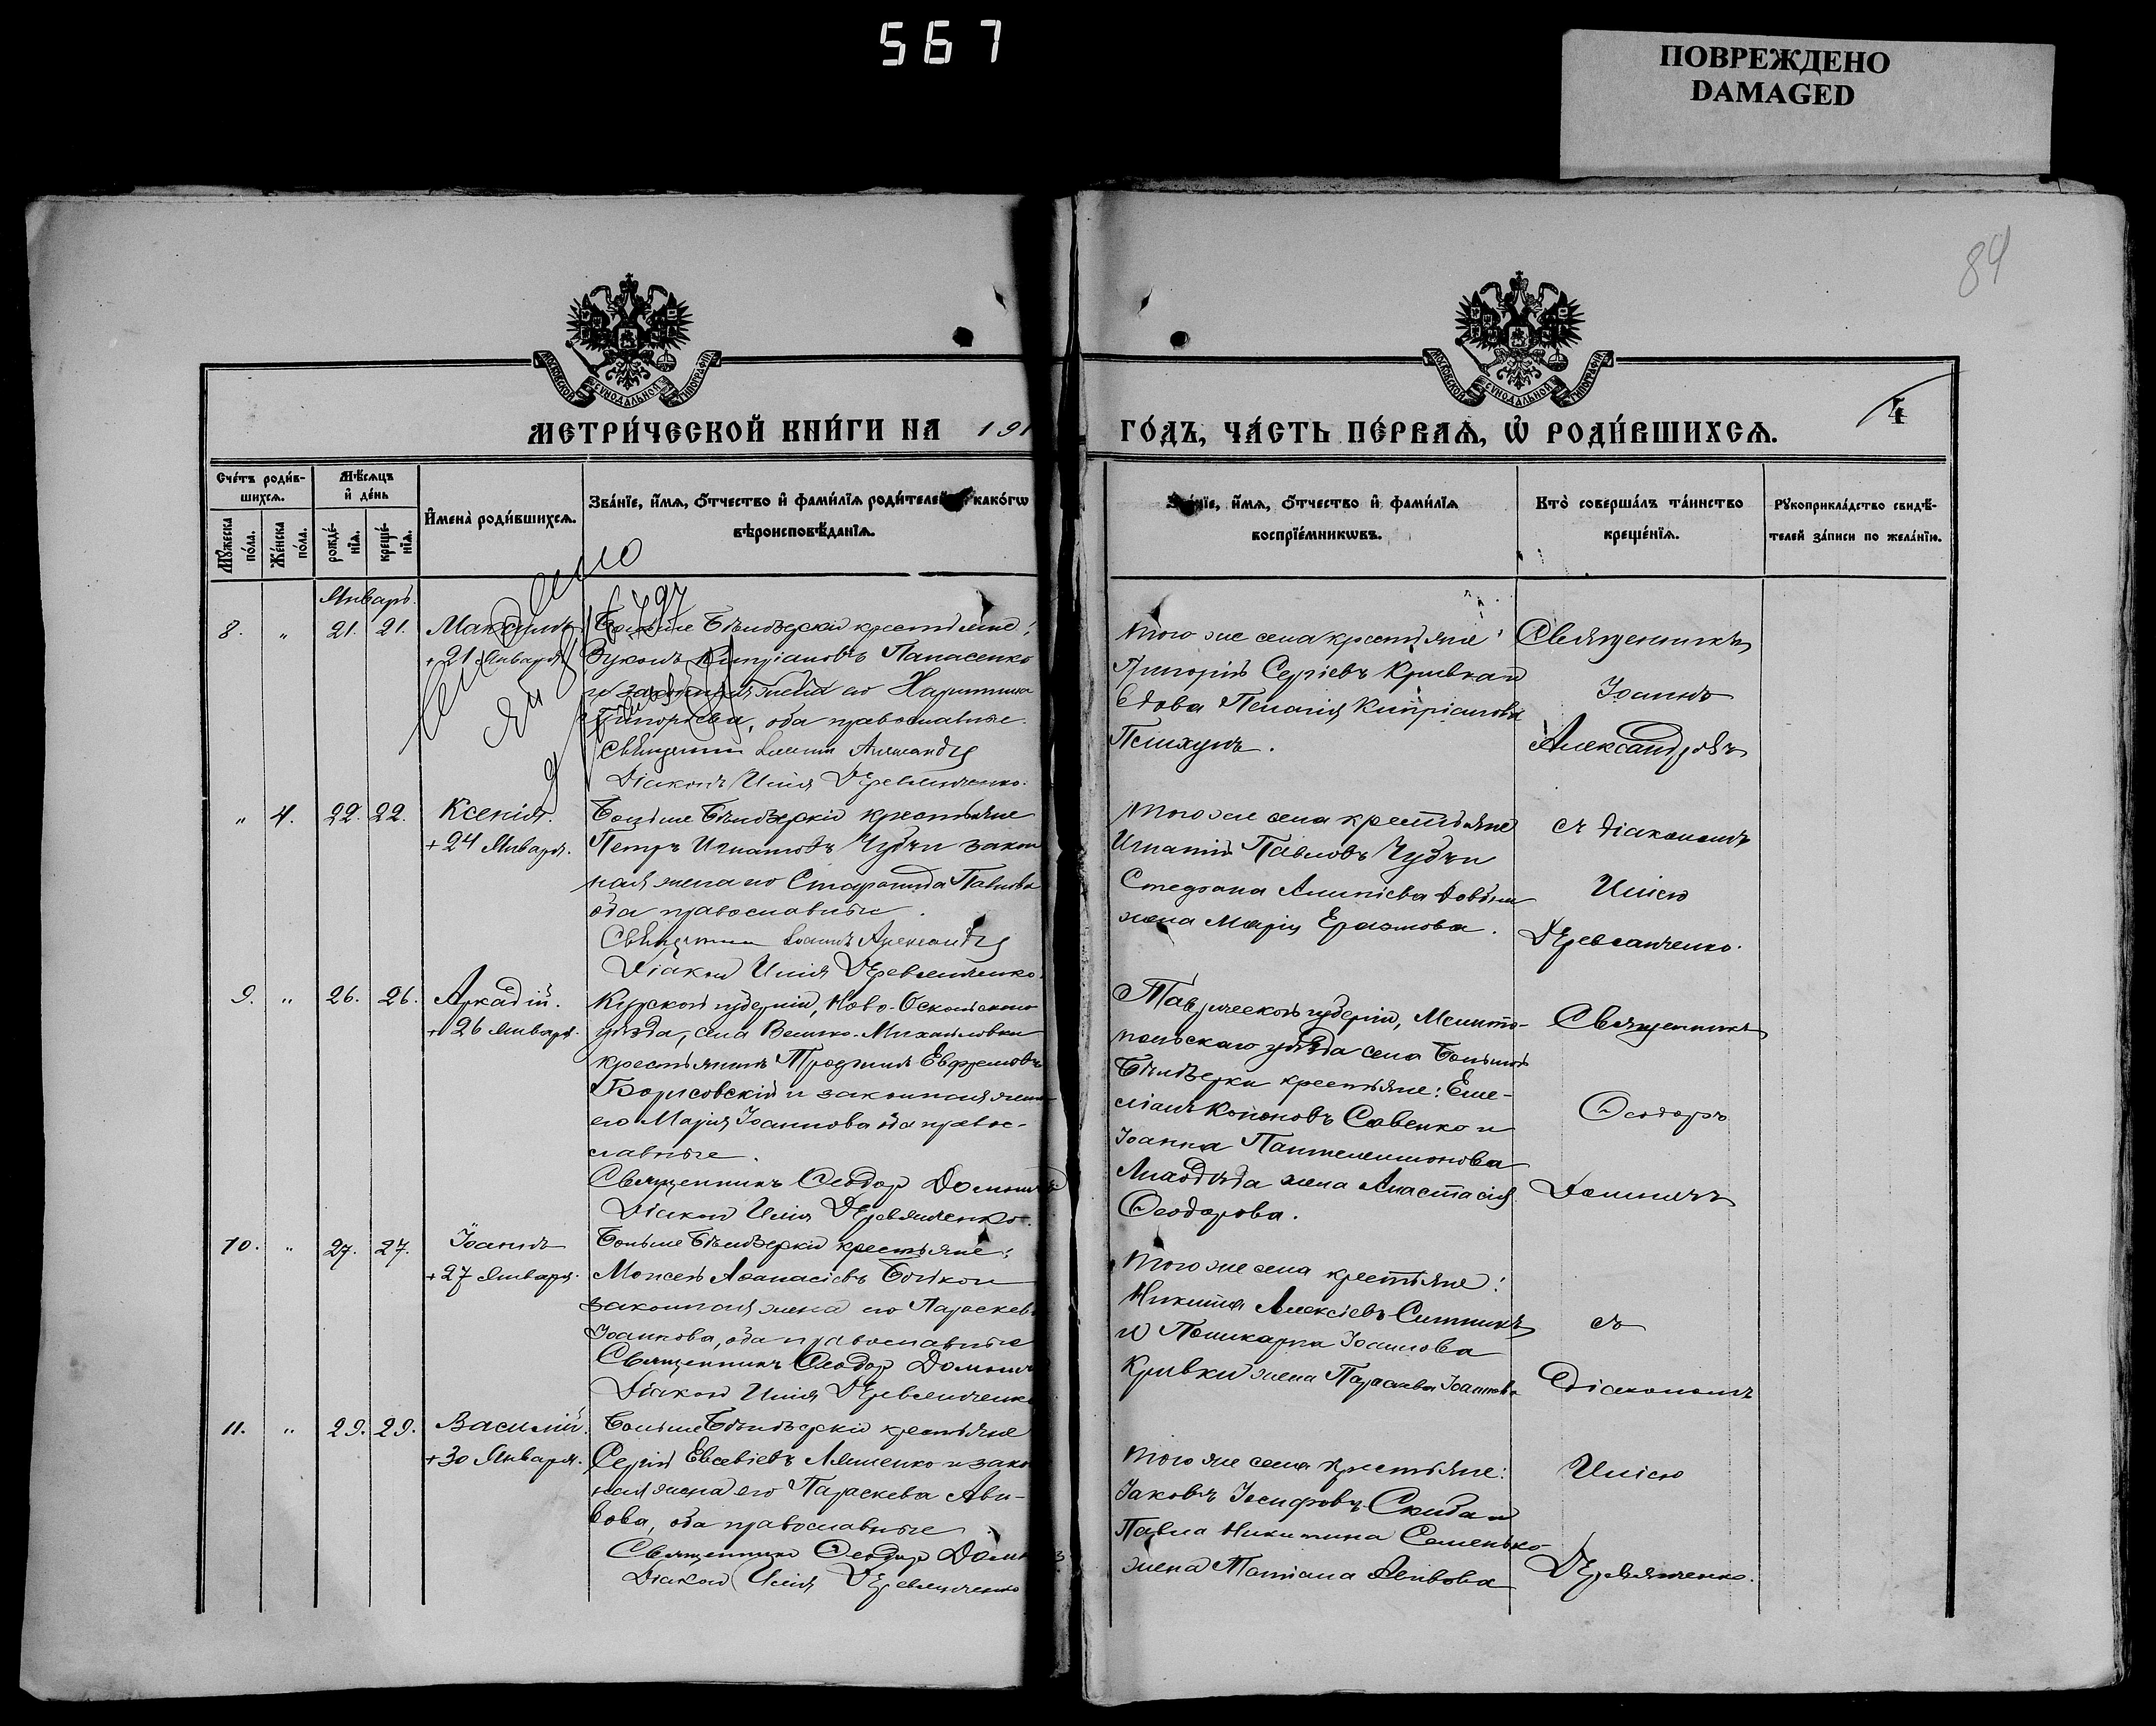 567
ПОВРЕЖДЕНО
DAMAGED
84
МОСКОВСКОЙ СѴНОДАЛЬНОЙ ТИПОГРАФІИ
МОСКОВСКОЙ СѴНОДАЛЬНОЙ ТИПОГРАФІИ
МЕТРИ́ЧЕСКОЙ КНИ́ГИ НА 191
ГО́ДЪ, ЧА́СТЬ ПЕ́РВАѦ, Ѡ҆ РОДИ́ВШИХСѦ.
4
Сче́тъ роди́в-
шихсѧ.
Мꙋ́жеска по́ла.
Же́нска по́ла.
Мѣ́сѧцъ
и҆ де́нь
рожде́-
нїѧ.
креще́-
нїѧ.
И҆мена̀ роди́вшихсѧ.
Зва́нїе, и҆́мѧ, ѻ҆́тчество и҆ фами́лїѧ роди́телей како́гѡ
вѣроисповѣ́данїѧ.
Зва́нїе, и҆́мѧ, ѻ҆́тчество и҆ фами́лїѧ
воспрїе́мникѡвъ.
Кто̀ соверша́лъ та́инство
креще́нїѧ.
Рꙋкоприкла́дство свидѣ́-
телей за́писи по жела́нїю.
Январь.
8. " 21. 21.
+ 21 Января
Больше Бѣлозерскіе крестьяне:
Кипріановъ Панасенко
и законная жена его Харитина
Григорьева, оба православные.
Діаконъ Илія Деревянченко.
того же села крестьяне:
Григорій Сергіевъ Кривка и
вдова Пелагія Кипріанова
Священникъ
Іоаннъ
Александровъ
" 4. 22. 22. Ксенія.
+ 24 Января.
Больше Бѣлозерскіе крестьяне
Петръ Игнатовъ
ная жена его Павлова
оба православные.
Діаконъ Илія Деревянченко.
того же села крестьяне
Игнатій Павловъ
Стефана
жена Марія
съ діакономъ
Иліею
Деревянченко.
9. " 26. 26. Аркадій.
+ 26 Января.
Курской губерніи, Ново-Оскольскаго
уѣзда, села Велико-Михайловки
крестьянинъ Трофимъ Евфремовъ
Борисовскій и законная жена
его Марія Іоаннова оба право-
славные.
Священникъ Ѳеодоръ
Діаконъ Илія Деревянченко.
Таврической губерніи, Мелито-
польскаго уѣзда села Большой
Бѣлозерки крестьяне: Еме-
ліанъ Кононовъ Савенко и
Іоанна Пантелеимонова
жена Анастасія
Ѳеодорова.
Священникъ
Ѳеодоръ
10. " 27. 27. Іоаннъ
+ 27 Января.
Больше Бѣлозерскіе крестьяне:
Моисей Аѳанасіевъ
законная жена его Параскева
Іоаннова, оба православные
Священникъ Ѳеодоръ
Діаконъ Илія Деревянченко
того же села крестьяне:
Никита Алексіевъ Ситникъ
и Поликарпа Іоаннова
Кривки жена Параскева Іоаннова
съ
діакономъ
11. " 29. 29. Василій.
+ 30 Января.
Больше Бѣлозерскіе крестьяне
Сергій Евсевіевъ Ляшенко и зако
ная жена его Параскева
оба православные
Священникъ Ѳеодоръ
Діаконъ Илія Деревянченко
того же села крестьяне:
Іаковъ Іосифовъ Скиба и
Павла Никитина Семенько
жена Татіана
Иліею
Деревянченко.